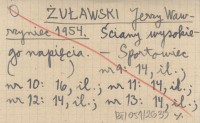 ŻUŁAWSKI Jerzy Waw-
rzyniec 1954. Ściany wysokie-
go napięcia. – Sportowiec
( ) nr 9: 14, il.;
nr 10: 16, il.; nr 11: 14, il.;
nr 12: 14, il.; nr 13: 14, il.;